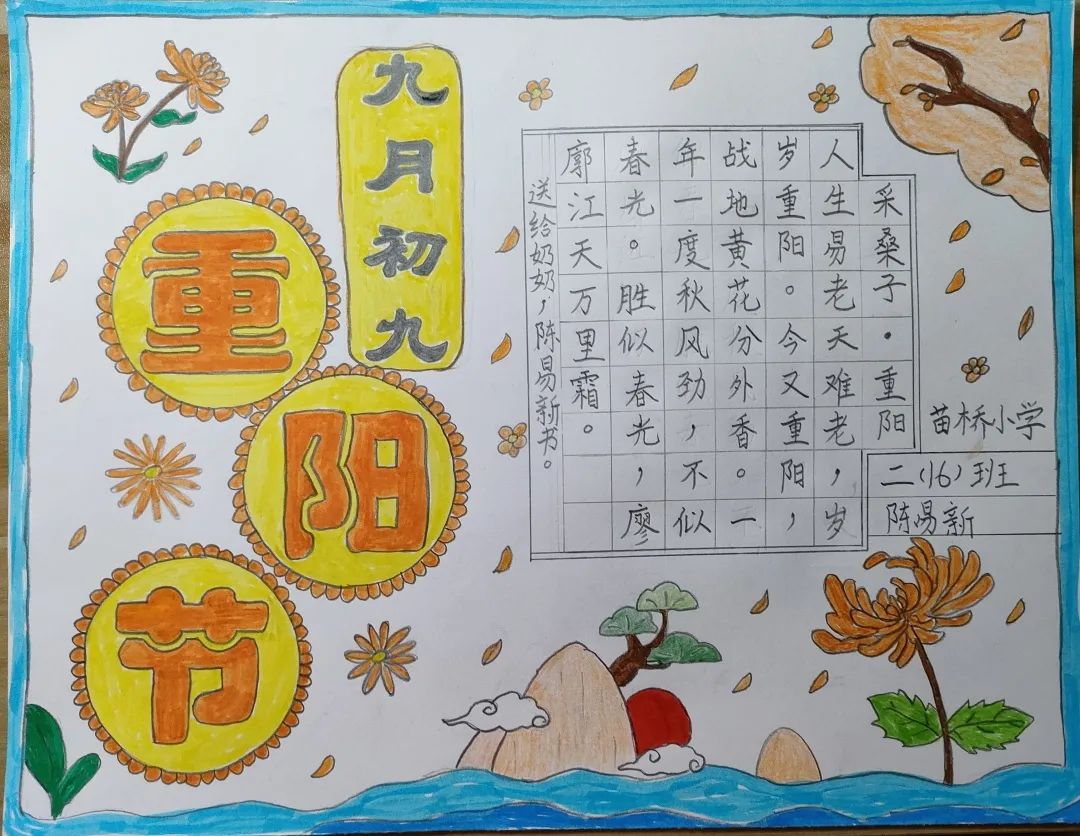 九月初九
重
阳
节
采桑子·重阳
人生易老天难老，岁
岁重阳。今又重阳，
战地黄花分外香。一
年一度秋风劲，不似
春光。胜似春光，廖
廓江天万里霜。
送给奶奶，陈易新书。
苗桥小学
二（16）班
陈易新